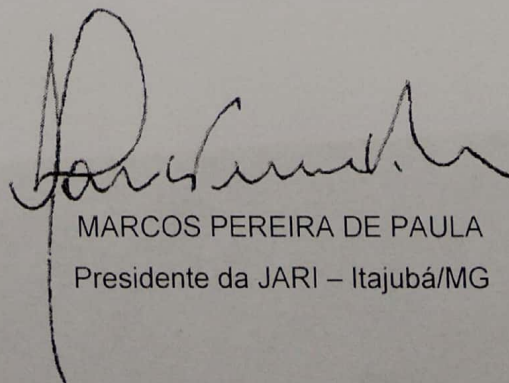 MARCOS PEREIRA DE PAULA
Presidente da JARI – Itajubá/MG